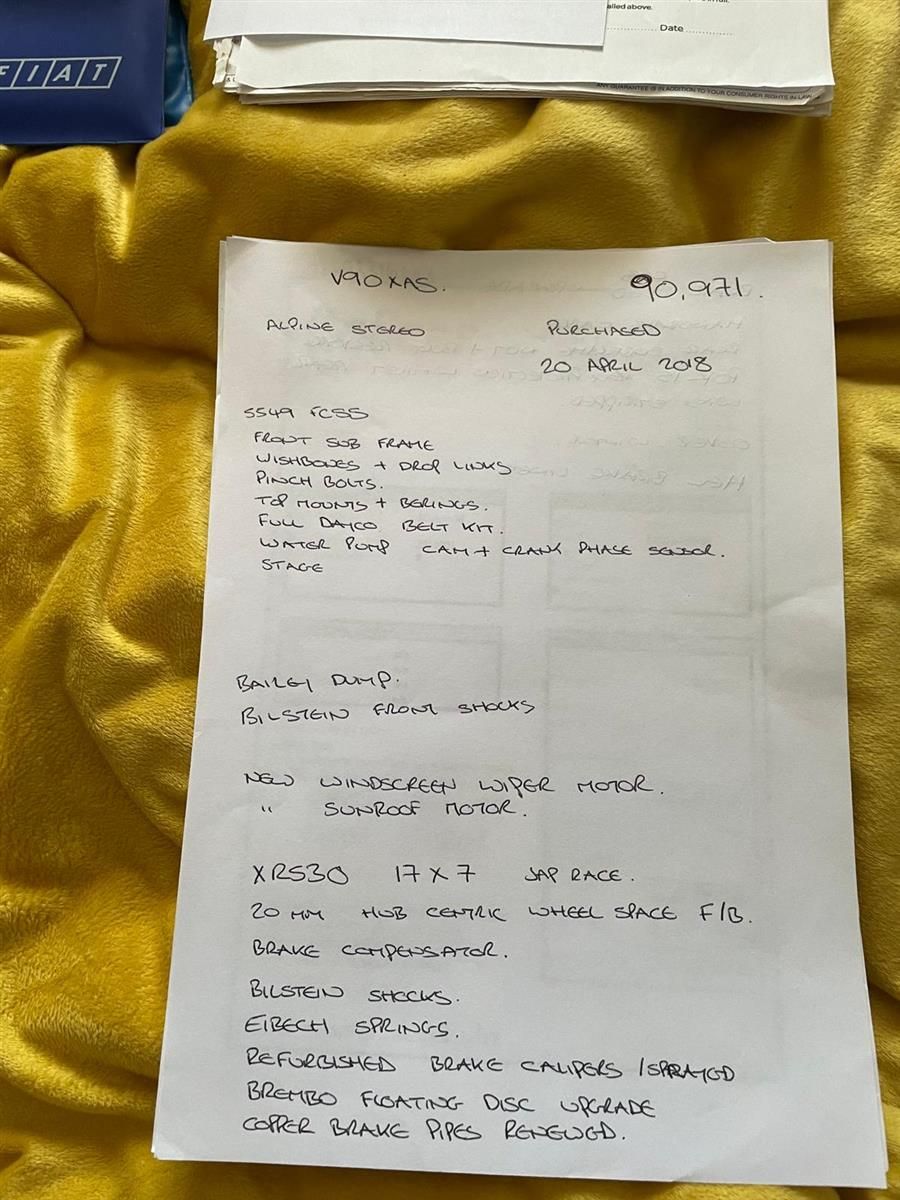 FIAT
alled above.
Date
ANY GUARANTEE IS IN ADDITION TO YOUR CONSUMER RIGHTS IN LAW
V90XAS. 90,971.
ALPINE STEREO PURCHASED
20 APRIL 2018
FRONT SUB FRAME
WISHBONES + DROP LINKS
PINCH BOLTS.
TOP MOUNTS + BERINGS.
FULL DAYCO BELT KIT.
WATER PUMP CAM + CRANK PHASE SENSOR.
STAGE
BAILEY DUMP.
BILSTEIN FRONT SHOCKS
NEW WINDSCREEN WIPER MOTOR.
" SUNROOF MOTOR.
XR530 17 X 7 JAP RACE.
20 MM HUB CENTRIC WHEEL SPACE F/B.
BRAKE COMPENSATOR.
BILSTEIN SHOCKS.
EIBECH SPRINGS.
REFURBISHED BRAKE CALIPERS / SPRAYED
BREMBO FLOATING DISC UPGRADE
COPPER BRAKE PIPES RENEWED.